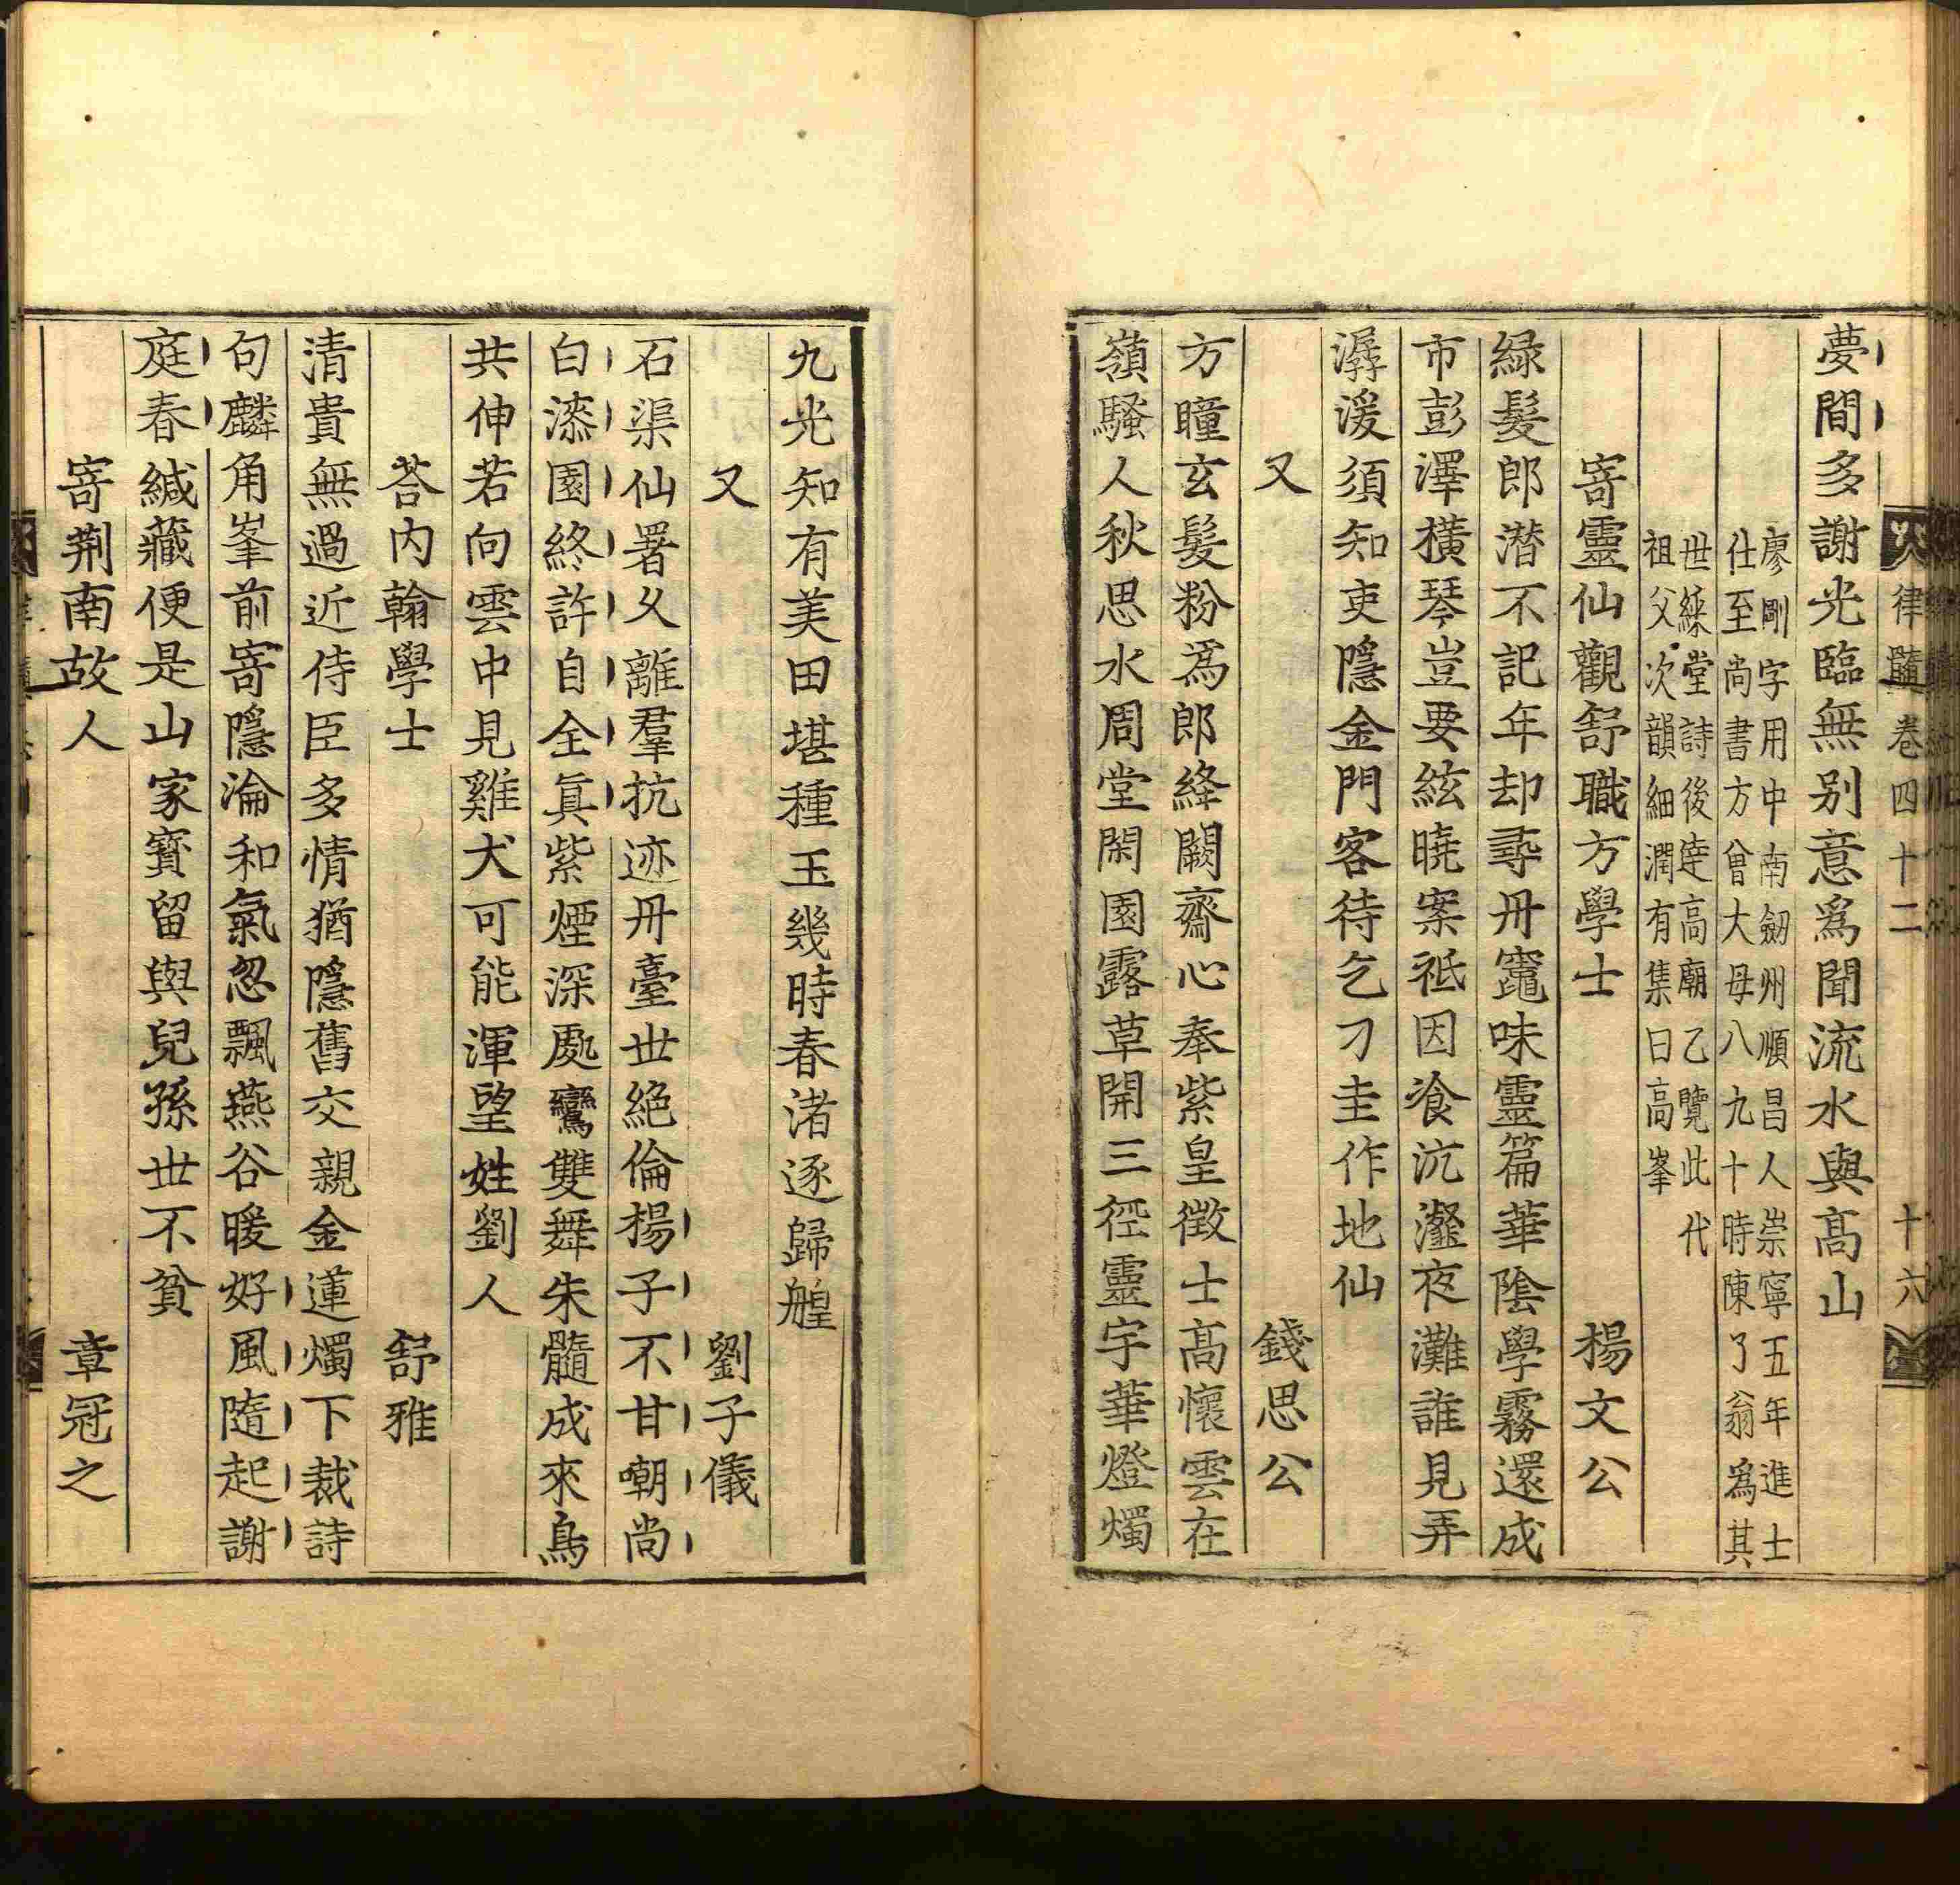 律髓卷四十二 十六
夢間多謝光臨無别意爲聞流水與髙山
廖剛字用中南劒州順昌人崇寧五年進士
仕至尚書方曾大母八九十時陳了翁爲其
世綵堂詩後逹高廟乙覽此代
祖父次韻細潤有集曰高峯
寄靈仙觀舒職方學士 楊文公
緑髮郎潜不記年却尋丹竈味靈篇華陰學霧還成
市彭澤横琴豈要絃曉案祗因飡沆瀣夜灘誰見弄
潺湲須知吏隱金門客待乞刁圭作地仙
又 錢思公
方瞳玄髮粉爲郎絳闕齋心奉紫皇徵士髙懷雲在
嶺騷人秋思水周堂閑園露草開三徑靈宇華燈燭
九光知有美田堪種玉幾時春渚逐歸艎
又 劉子儀
石渠仙署乆離羣抗迹丹臺丗絶倫楊子不甘嘲尚
白漆園終許自全眞紫煙深處鸞雙舞朱髓成來鳥
共伸若向雲中見雞犬可能渾望姓劉人
荅内翰學士 舒雅
清貴無過近侍臣多情猶隱舊交親金蓮燭下裁詩
句麟角峯前寄隱淪和氣忽飄燕谷暖好風隨起謝
庭春緘藏便是山家寳留與兒孫丗不貧
寄荆南故人 章冠之